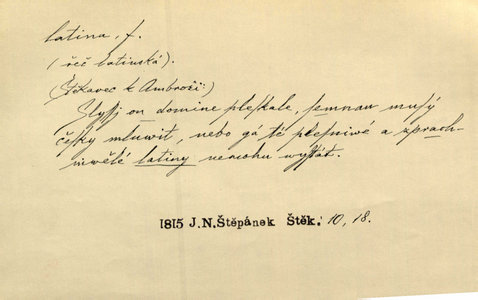 latina, f.
(řeč latinská).
(Štěkavec k Ambroži:)
Slyšj on domine pleskale, semnau musý
česky mluwit, nebo gá té plesniwé a zprach-
niwělé latiny nemohu wystát.
1815 J.N.Štěpánek Štěk. 10, 18.